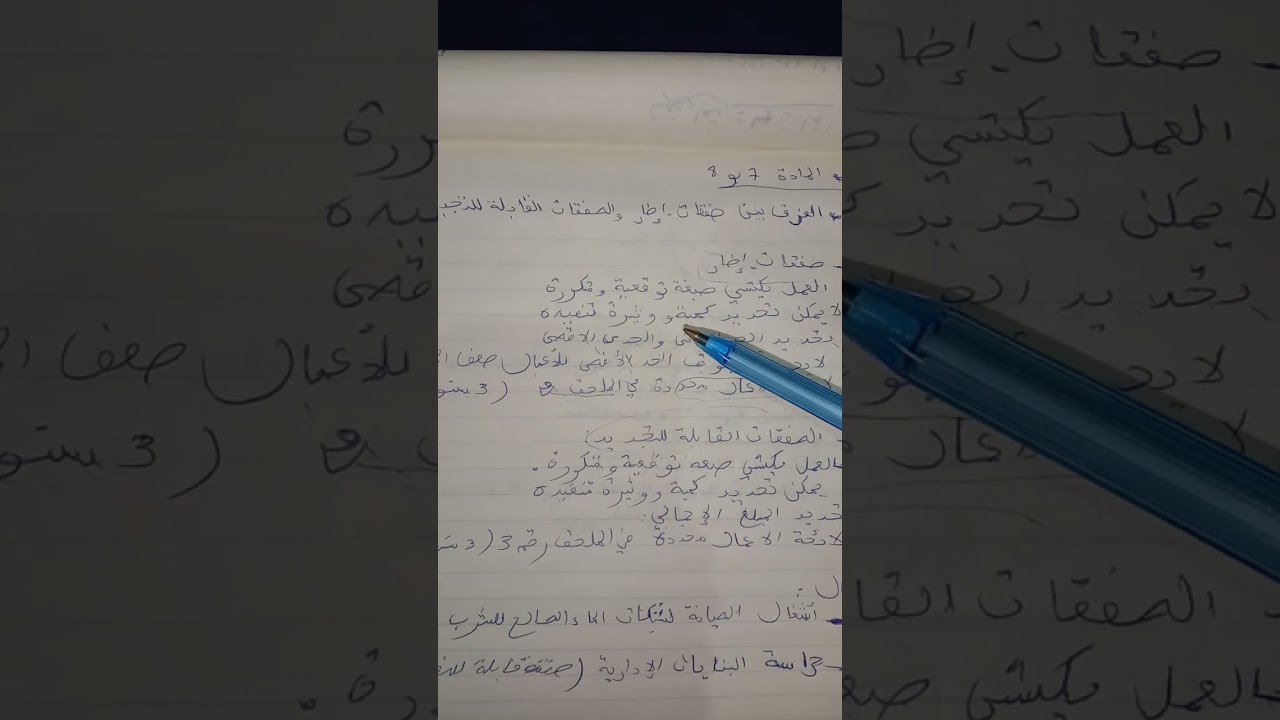 المادة 7 و 8
الفرق بين صفقات-إطار والصفقات القابلة للتجد
- صفقات-إطار
العمل يكتسي صبغة توقعية ومتكررة
لا يمكن تحديد كمية و وثيرة تنفيده
تحديد الحد والحدى الاقصى
الحد الأقصى للأعمال ضعف ال
محددة في الملحق 2 (3 سنو
الصفقات القابلة للتجديد:
العمل يكتسي صبغه توقعية ومتكررة.
يمكن تحديد كمية ووثيرة تنفيده
تحديد المبلغ الإجمالي:
لائحة الاعمال محددة في الملحق رقم 3 (3 سن
- أشغال الصيانة لشبكات الماء الصالح للشرب
- حراسة البنايات الإدارية (صفقة قابلة للت